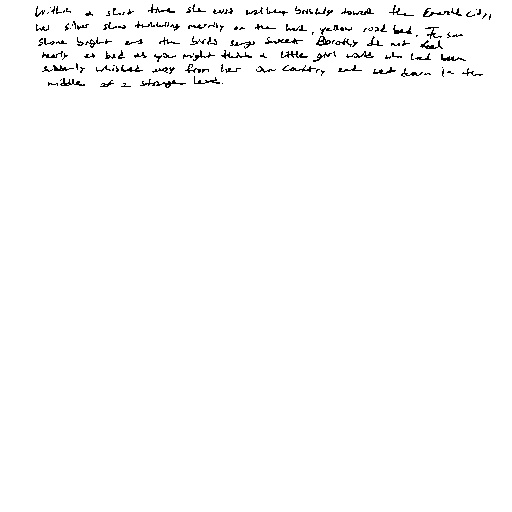 Within a short time she was walking briskly toward the Emerald City,
her silver shoes tinkling merrily on the hard, yellow road bed. The sun
shone bright and the birds sang sweet Dorothy did not feel
nearly as bad as you might think a little girl would who had been
suddenly whisked away from her own country and set down in the
middle of a strange land.